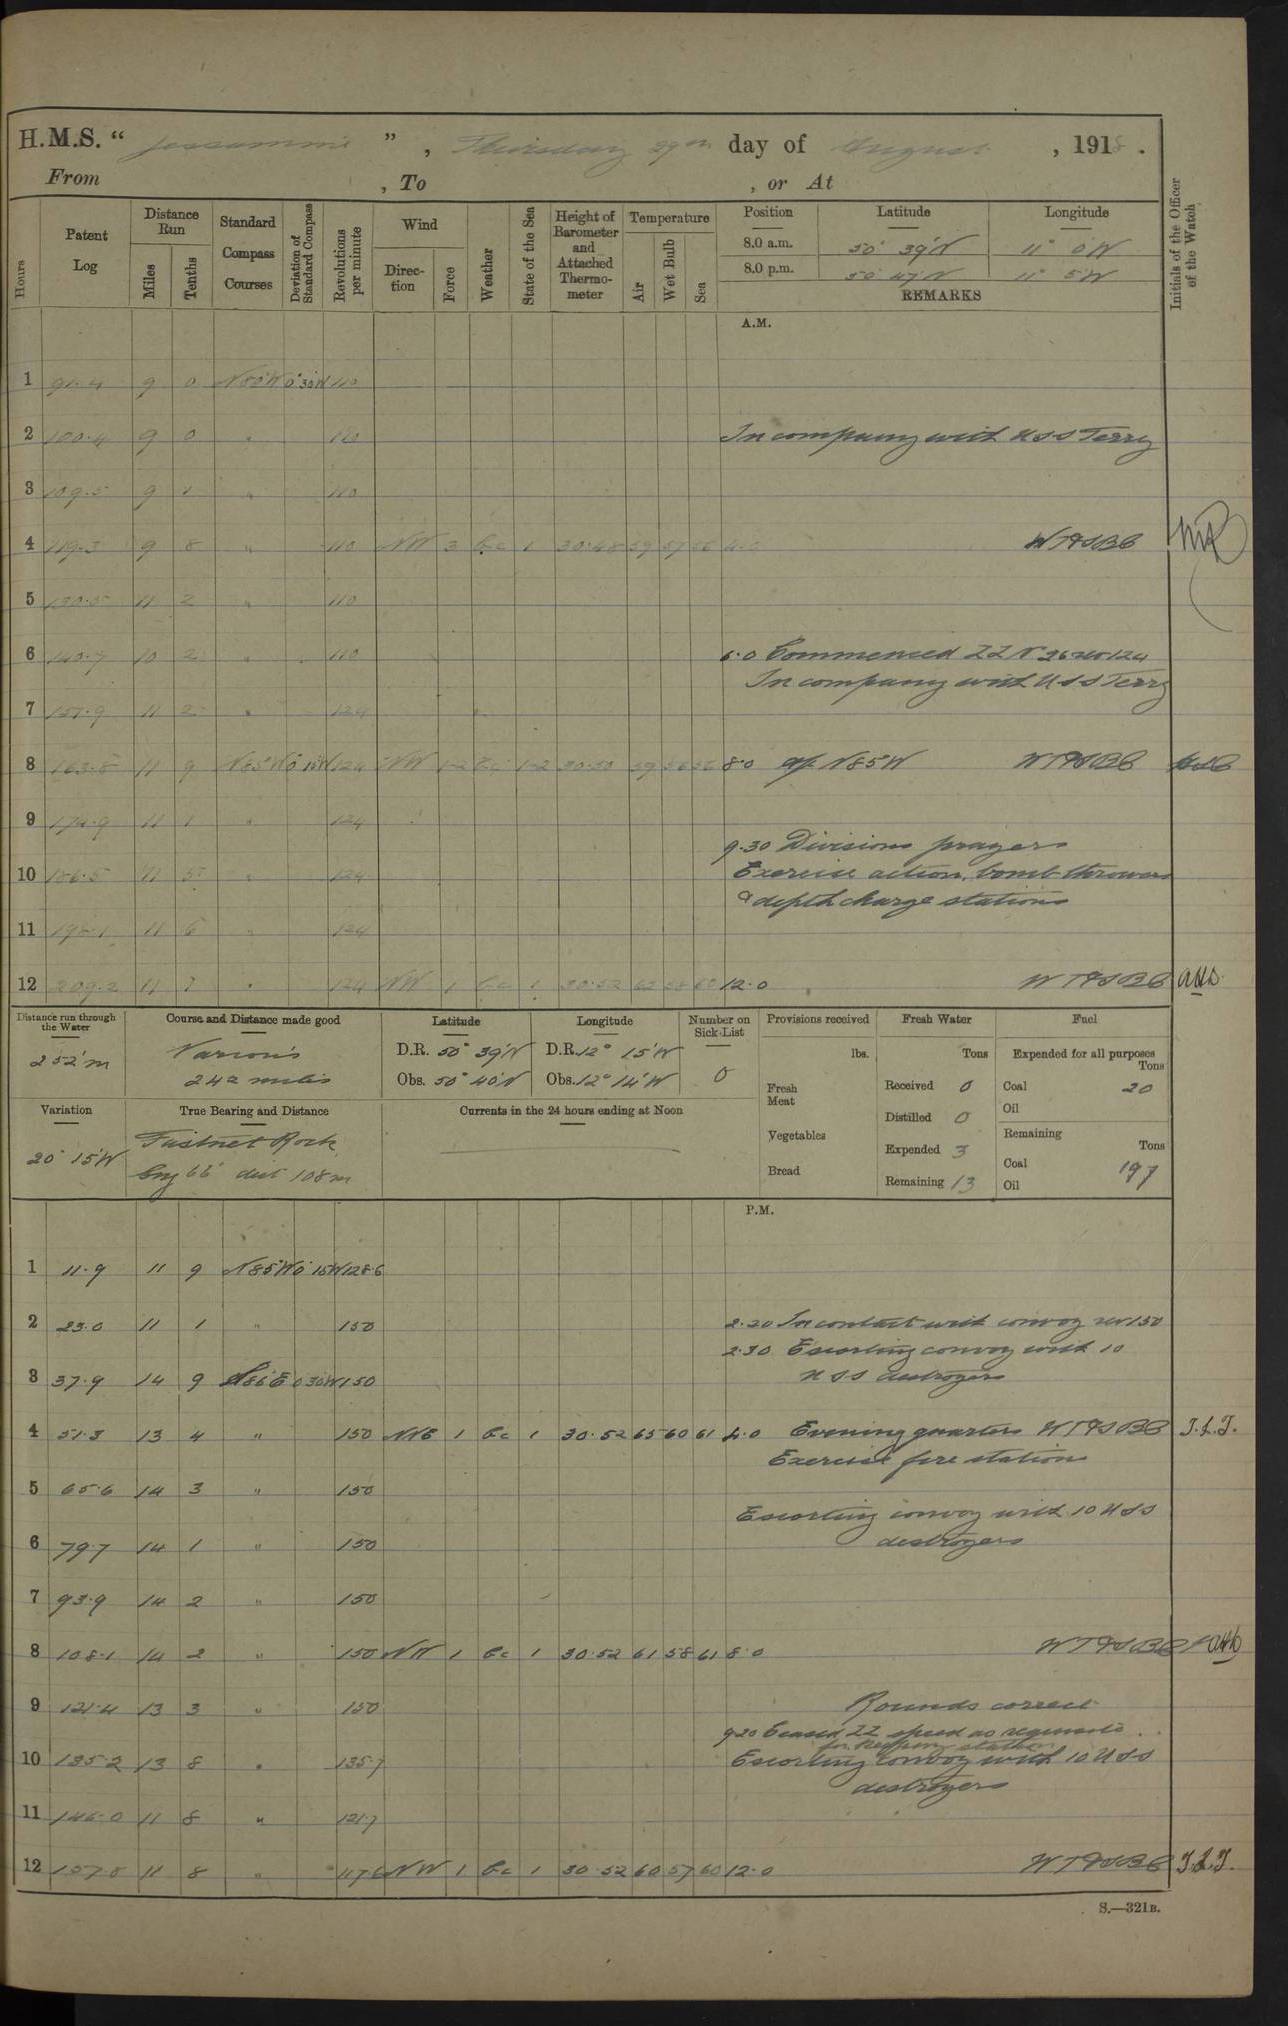 H.M.S. "Jessamine", Thursday 29th day of August, 1918.
From , To , or At
Hours
Patent Log
Distance Run
Miles
Tenths
Standard Compass Courses
Deviation of Standard Compass
Revolutions per minute
Wind
Direction
Force
Weather
State of the Sea
Height of Barometer and Attached Thermometer
Temperature
Air
Wet Bulb
Sea
Position Latitude Longitude
8.0 a.m. 50° 39'N 11° 0'W
8.0 p.m. 50° 47'N 11° 5'W
REMARKS
Initials of the Officer of the Watch
A.M.
1 91.4 9 0 N80°W 0°30'W 110
2 100.4 9 0 " 110 In company with USS Terry
3 109.5 9 1 " 110
4 119.3 9 8 " 110 NW 3 bc 1 30.48 59 57 56 4.0 WT&SBC
5 130.5 11 2 " 110
6 140.7 10 2 " 110 6.0 Commenced ZZ N 26 rev 124
In company with USS Terry
7 151.9 11 2 " 124
8 163.8 11 9 N85°W 0°15'W 124 NW 1-2 bc 1-2 30.50 59 56 56 8.0 a/c N85W WT&SBC
9 174.9 11 1 " 124
9.30 Divisions prayers
10 186.5 11 5 " 124 Exercise action, bomb throwers
& depth charge stations
11 198.1 11 6 " 124
12 209.2 11 1 " 124 NW 1 bc 1 30.52 62 58 60 12.0 WT&SBC
Distance run through the Water
252'm
Course and Distance made good
Various
242 miles
Latitude
D.R. 50° 39'N
Obs. 50° 40'N
Longitude
D.R. 12° 15'W
Obs. 12° 14'W
Number on Sick List
0
Provisions received
lbs.
Fresh Meat
Vegetables
Bread
Fresh Water
Tons
Received 0
Distilled 0
Expended 3
Remaining 13
Fuel
Expended for all purposes
Tons
Coal 20
Oil
Remaining
Tons
Coal 197
Oil
Variation
20° 15'W
True Bearing and Distance
Fastnet Rock
brg 66° dist 108m
Currents in the 24 hours ending at Noon
P.M.
1 11.9 11 9 N85°W 0°15'W 128.6
2 23.0 11 1 " 150 2.20 In contact with convoy rev 150
2.30 Escorting convoy with 10
3 37.9 14 9 S86°E 0 30'W 150 USS destroyers
4 51.3 13 4 " 150 NNE 1 bc 1 30.52 65 60 61 4.0 Evening quarters WT&SBC J.L.J.
Exercise fire station
5 65.6 14 3 " 150
Escorting convoy with 10 USS
6 79.7 14 1 " 150 destroyers
7 93.9 14 2 " 150
8 108.1 14 2 " 150 NW 1 bc 1 30.52 61 58 61 8.0 WT&SBC
9 121.4 13 3 " 150 Rounds correct
9.20 Ceased ZZ speed as requisite
for keeping station
10 135.2 13 8 " 135.7 Escorting convoy with 10 USS
destroyers
11 146.0 11 8 " 121.7
12 157.8 11 8 " 117.6 NW 1 bc 1 30.52 60 57 60 12.0 WT&SBC J.L.J.
S.—321B.